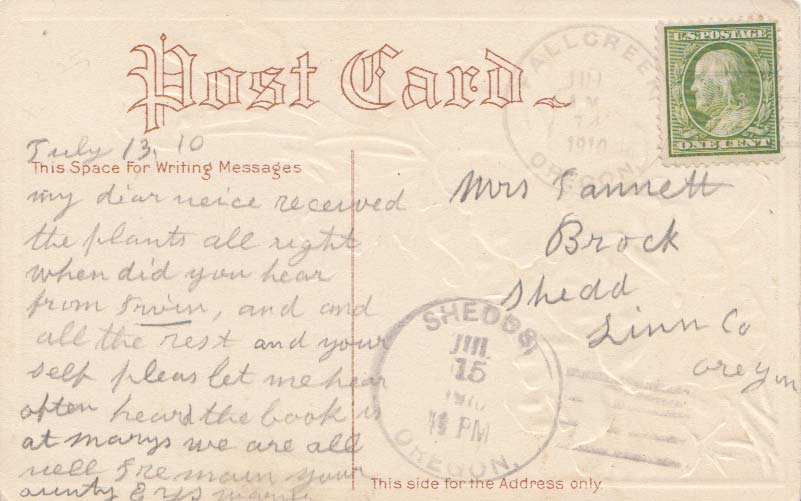 Post Card
ALLCREE
JUL
1910
OREGON
U.S. POSTAGE
ONE CENT
July 13, 10
This Space For Writing Messages
my diar neice received
the plants all right
when did you hear
from Irvin, and and
all the rest and your
self pleas let me hear
often heard the book is
at marys we are all
well I remain your
aunty
Mrs Fannett
Brock
Shedd
Linn Co
oregon
SHEDDS,
JUL
15
PM
OREGON.
This side for the Address only.